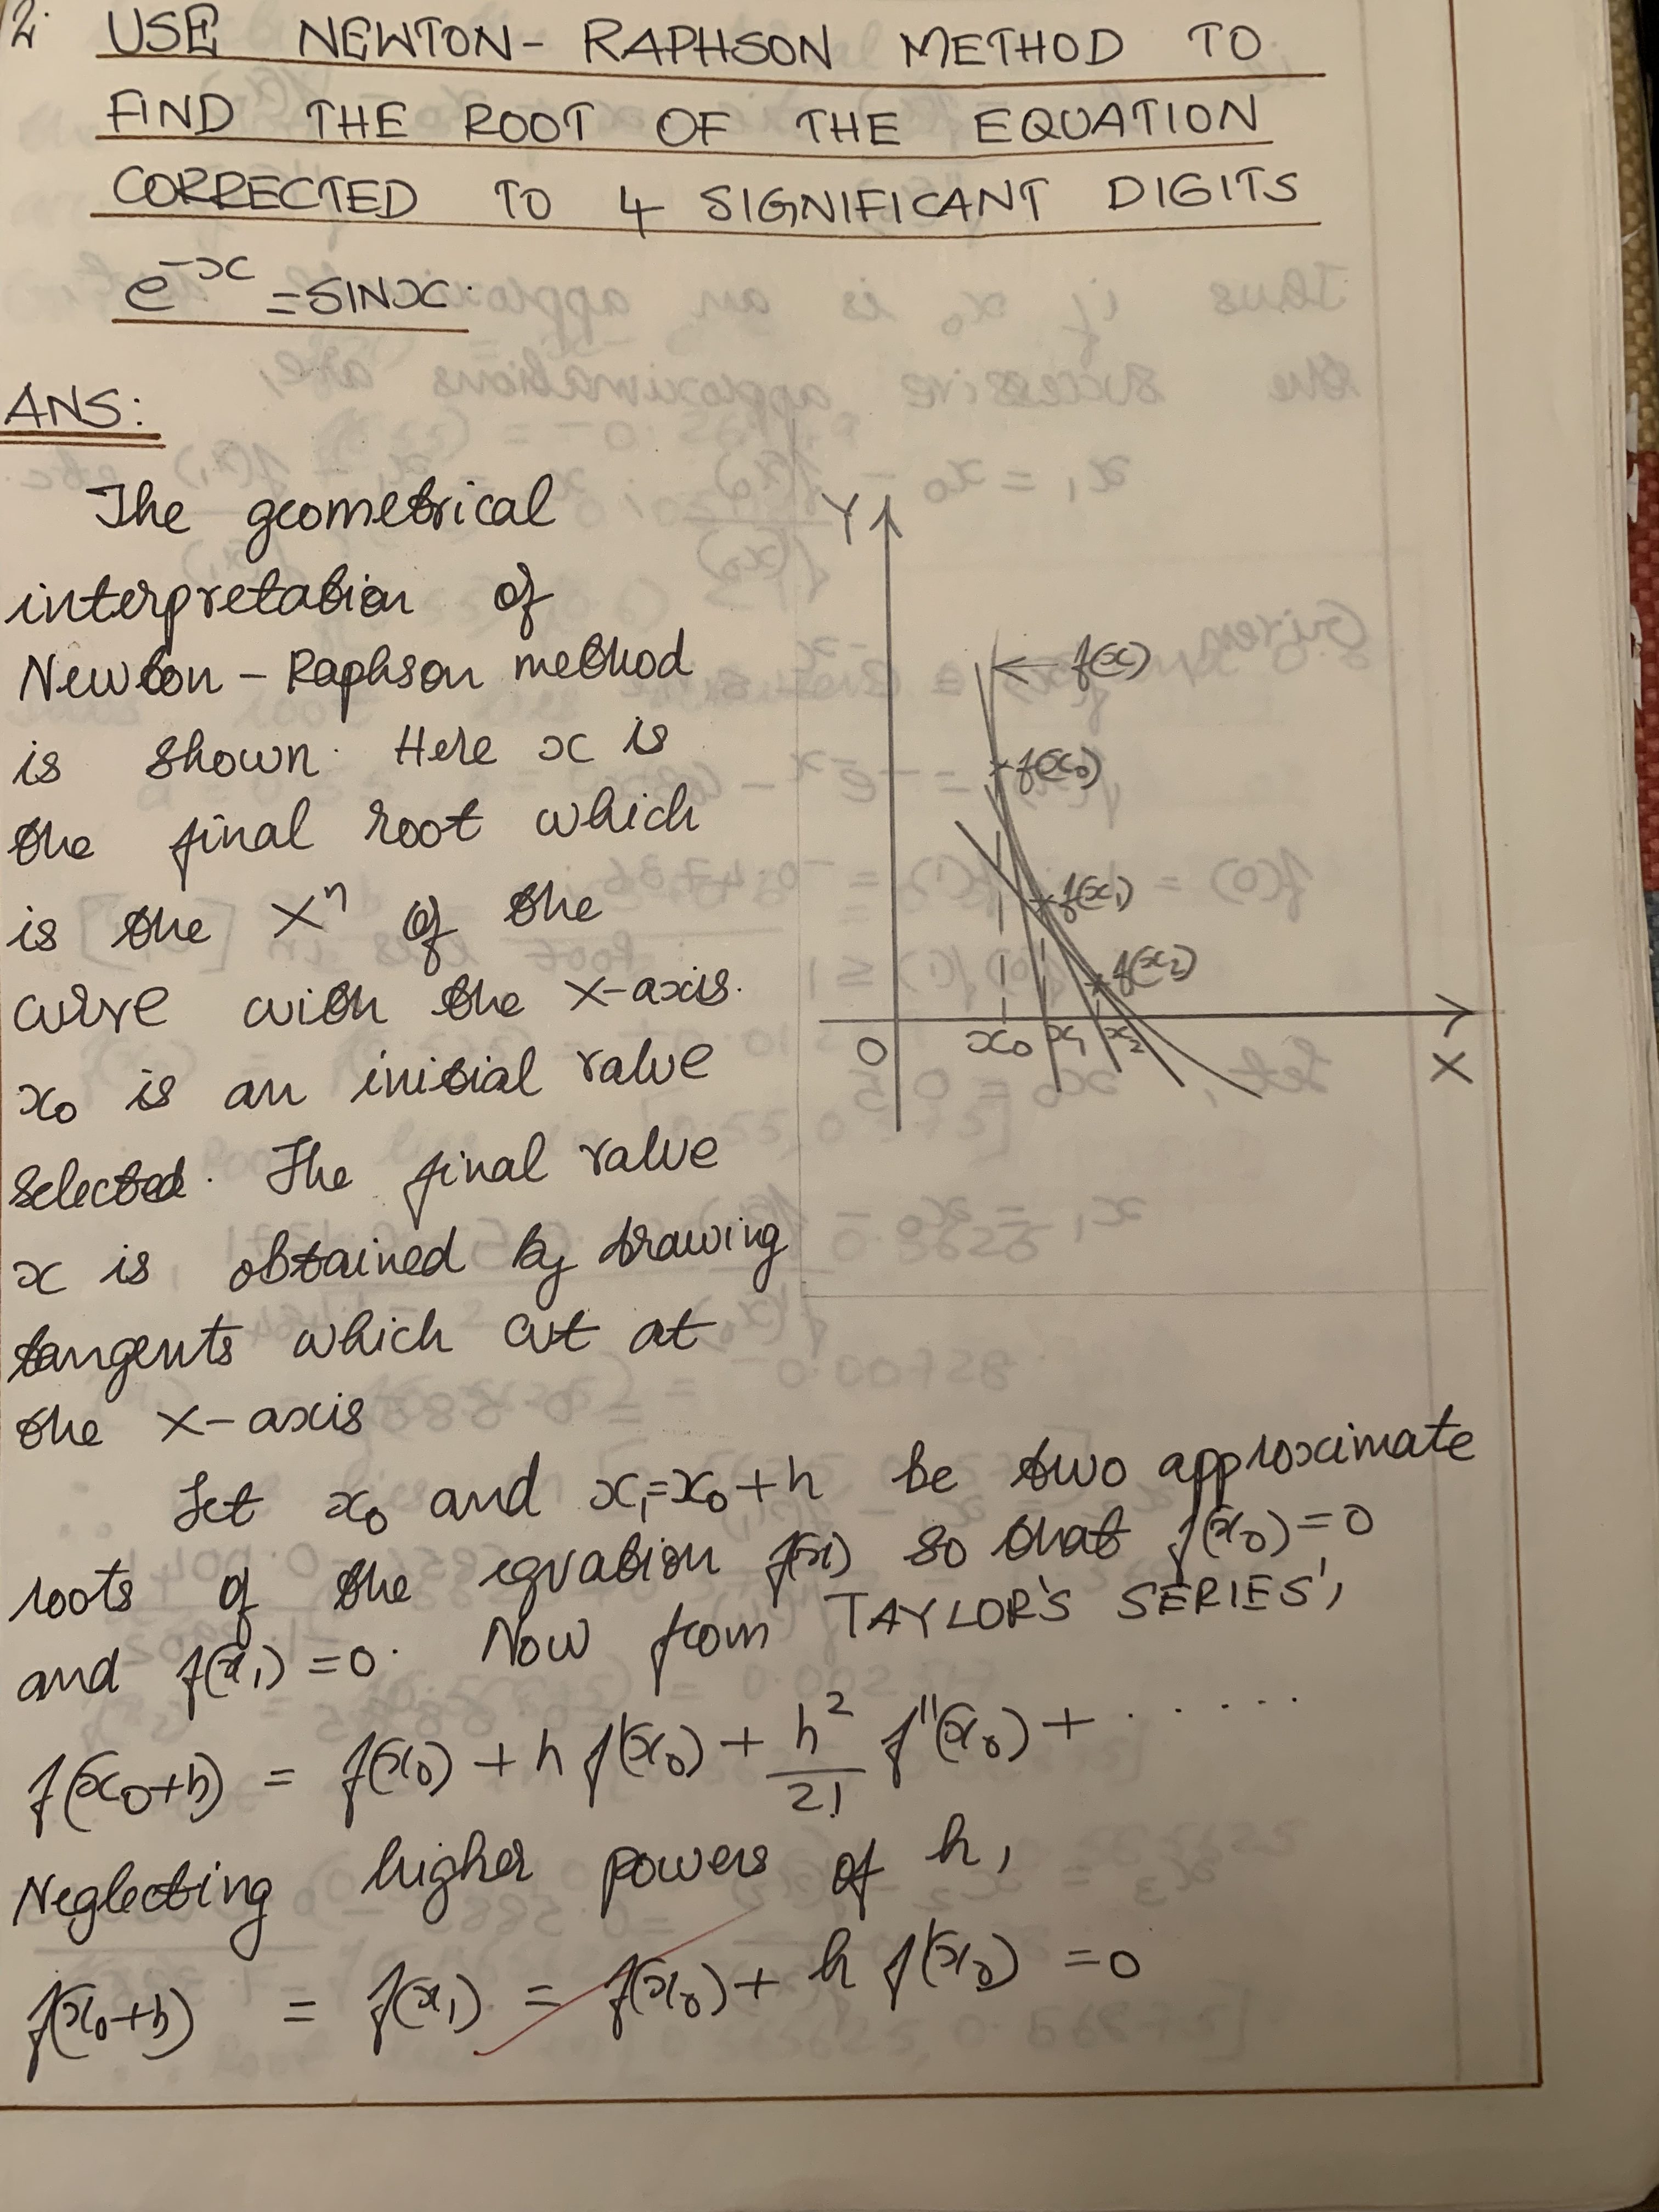 2. USE NEWTON- RAPHSON METHOD TO
FIND THE ROOT OF THE EQUATION
CORRECTED TO 4 SIGNIFICANT DIGITS
e^-x = SINx.
ANS:
The geometrical
interpretation of
Newton - Raphson method
is shown. Here x is
the final root which
is the Xⁿ of the
curve with the X-axis.
x₀ is an initial value
selected. The final value
x is obtained by drawing
tangents which cut at
the X-axis
Y
f(x)
f(x₀)
f(x₁)
f(x₂)
O x₀ x₁ x₂ X
Let x₀ and x₁=x₀+h be two approximate
roots of the equation f(x) so that f(x₀)=0
and f(x₁)=0. Now from TAYLOR'S SERIES',
f(x₀+h) = f(x₀) + h f'(x₀) + h²/2! f''(x₀) + ......
Neglecting higher powers of h,
f(x₀+h) = f(x₁) = f(x₀) + h f'(x₀) = 0